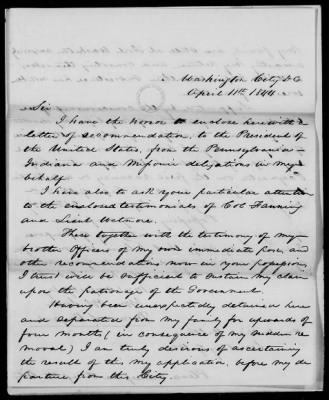 Washington City D.C.
April 11th 1844.
Sir
I have the honor to enclose herewith a
letter of recommendation, to the President of
the United States, from the Pennsylvania-
Indiana and Missouri delegations in my
behalf.
I have also to ask your particular attention
to the enclosed testimonials of Col Fanning
and Lieut Wetmore.
These together with the testimony of my
brother Officers of my own immediate Corps and
other recommendations now in your possession
I trust will be sufficient to sustain my claim
upon the patronage of the Government.
Having been unexpectedly detained here
and separated from my family for upwards of
four months (in consequence of my sudden re
moval) I am truly desirous of ascertaining
the result of this my application, before my de
parture from this City.